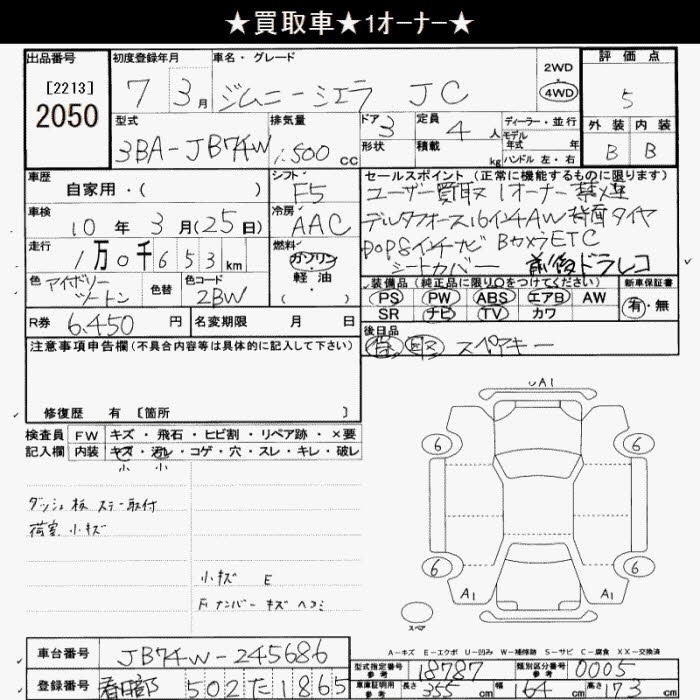 ★買取車★1オーナー★
出品番号
[2213]
2050
初度登録年月
7 3月
車名・グレード
ジムニーシエラ JC
2WD
4WD
評価点
5
型式
3BA-JB74W
排気量
1.500 cc
ドア 3
形状
定員 4 人
積載 kg
ディーラー・並行
モデル年式 年
ハンドル 左・右
外装 内装
B B
車歴
自家用・( )
シフト
F5
車検
10年3月(25日)
冷房
AAC
走行
1万0千653km
燃料
ガソリン
・
軽油
( )
色 アイボリーツートン
色替
色コード
2BW
R券 6.450 円
名変期限 月 日
セールスポイント(正常に機能するものに限ります)
ユーザー買取 1オーナー 禁煙
デルタフォース16インチAW 背面タイヤ
POP8インチナビ BカメラETC
シートカバー 前後ドラレコ
装備品(純正品に限り○をつけてください)
PS PW ABS エアB AW
SR ナビ TV カワ
新車保証書
有・無
後日品
スペアキー
注意事項申告欄(不具合内容等は具体的に記入して下さい)
修復歴 有 [箇所 ]
検査員記入欄
FW キズ・飛石・ヒビ割・リペア跡・×要
内装 キズ・汚レ・コゲ・穴・スレ・キレ・破レ
小 小
ダッシュ板 ステー取付
荷室 小キズ
小キズ E
Fナンバー キズ ヘコミ
UA1
6 6
6 6
A1 A1
スペア
A－キズ E－エクボ U－凹み W－補修跡 S－サビ C－腐食 XX－交換済
車台番号 JB74W-245686
登録番号 502た1865
型式指定番号 参考 18787
類別区分番号 参考 0005
車庫証明用 参考 長さ 355 cm 幅 164 cm 高さ 173 cm